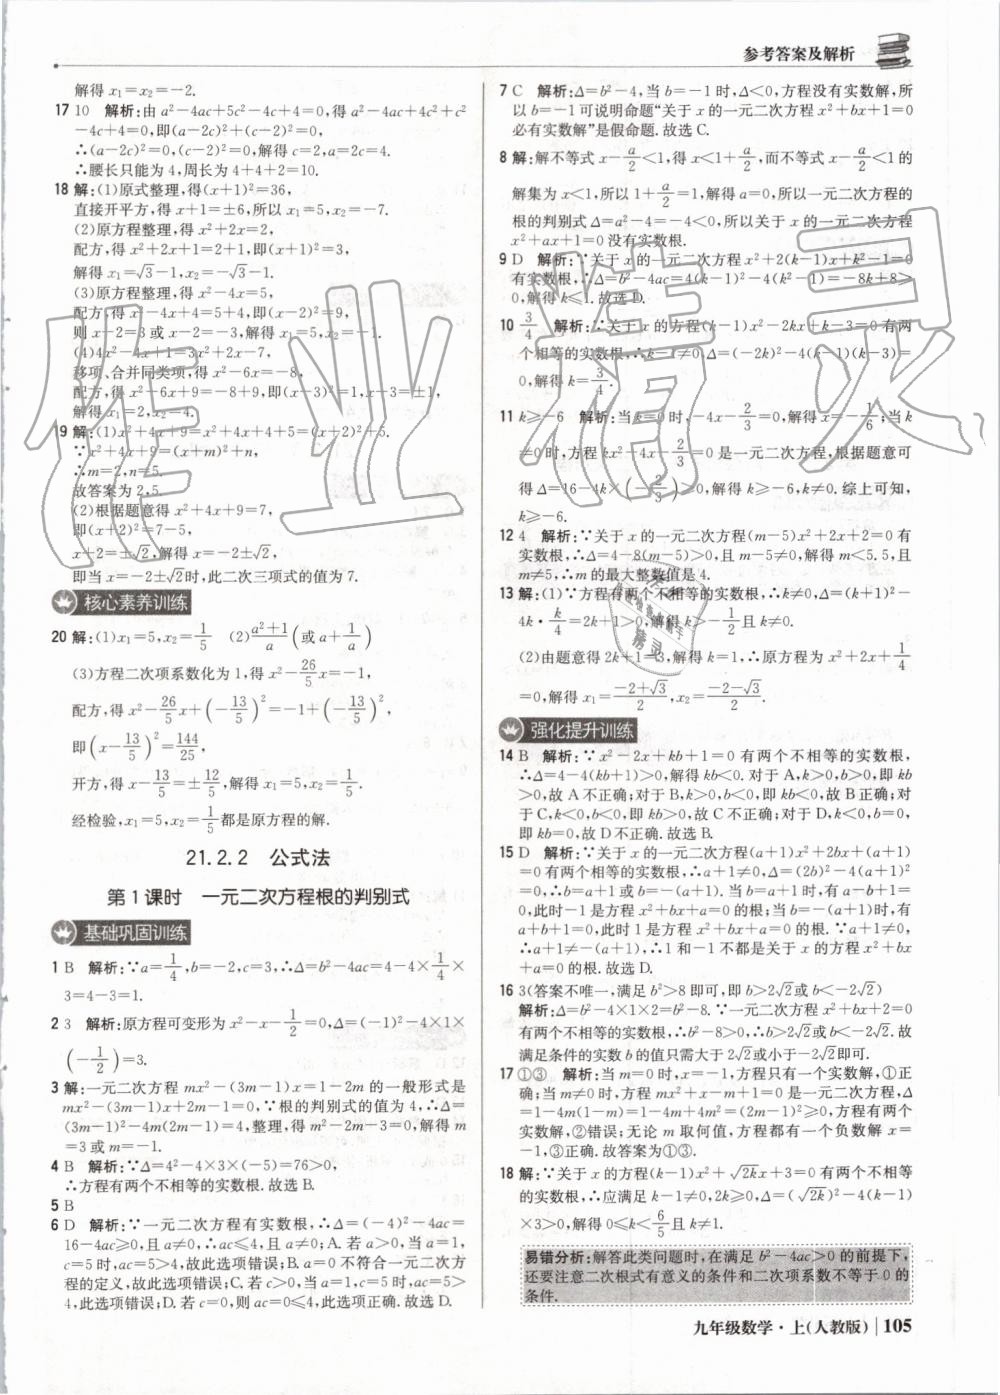 参考答案及解析
解得 x₁=x₂=-2.
17 10 解析:由 a²-4ac+5c²-4c+4=0,得 a²-4ac+4c²+c²
-4c+4=0,即(a-2c)²+(c-2)²=0,
∴(a-2c)²=0,(c-2)²=0,解得 c=2,a=2c=4.
∴腰长只能为 4,周长为 4+4+2=10.
18 解:(1)原式整理,得(x+1)²=36,
直接开平方,得 x+1=±6,所以 x₁=5,x₂=-7.
(2)原方程整理,得 x²+2x=2,
配方,得 x²+2x+1=2+1,即(x+1)²=3,
解得 x₁=√3-1,x₂=-√3-1.
(3)原方程整理,得 x²-4x=5,
配方,得 x²-4x+4=5+4,即(x-2)²=9,
则 x-2=3 或 x-2=-3,解得 x₁=5,x₂=-1.
(4)4x²-4x+1=3x²+2x-7,
移项、合并同类项,得 x²-6x=-8,
配方,得 x²-6x+9=-8+9,即(x-3)²=1,x-3=±1,
解得 x₁=2,x₂=4.
9 解:(1)x²+4x+9=x²+4x+4+5=(x+2)²+5.
∵x²+4x+9=(x+m)²+n,
∴m=2,n=5.
故答案为 2,5.
(2)根据题意得 x²+4x+9=7,
即(x+2)²=7-5,
x+2=±√2,解得 x=-2±√2,
即当 x=-2±√2时,此二次三项式的值为 7.
核心素养训练
20 解:(1)x₁=5,x₂=1/5 (2)(a²+1)/a(或 a+1/a)
(3)方程二次项系数化为 1,得 x²-26/5x=-1,
配方,得 x²-26/5x+(-13/5)²=-1+(-13/5)²,
即(x-13/5)²=144/25,
开方,得 x-13/5=±12/5,解得 x₁=5,x₂=1/5.
经检验,x₁=5,x₂=1/5都是原方程的解.
21.2.2 公式法
第 1 课时 一元二次方程根的判别式
基础巩固训练
1 B 解析:∵a=1/4,b=-2,c=3,∴Δ=b²-4ac=4-4×1/4×
3=4-3=1.
2 3 解析:原方程可变形为 x²-x-1/2=0,Δ=(-1)²-4×1×
(-1/2)=3.
3 解:一元二次方程 mx²-(3m-1)x=1-2m 的一般形式是
mx²-(3m-1)x+2m-1=0,∵根的判别式的值为 4,∴Δ=
(3m-1)²-4m(2m-1)=4,整理,得 m²-2m-3=0,解得 m
=3 或 m=-1.
4 B 解析:∵Δ=4²-4×3×(-5)=76>0,
∴方程有两个不相等的实数根.故选 B.
5 B
6 D 解析:∵一元二次方程有实数根,∴Δ=(-4)²-4ac=
16-4ac≥0,且 a≠0,∴ac≤4,且 a≠0;A.若 a>0,当 a=1,
c=5 时,ac=5>4,故此选项错误;B.a=0 不符合一元二次方
程的定义,故此选项错误;C.若 c>0,当 a=1,c=5 时,ac=5>
4,此选项错误;D.若 c=0,则 ac=0≤4,此选项正确.故选 D.
7 C 解析:Δ=b²-4,当 b=-1 时,Δ<0,方程没有实数解,所
以 b=-1 可说明命题“关于 x 的一元二次方程 x²+bx+1=0
必有实数解”是假命题.故选 C.
8 解:解不等式 x-a/2<1,得 x<1+a/2,而不等式 x-a/2<1 的
解集为 x<1,所以 1+a/2=1,解得 a=0,所以一元二次方程的
根的判别式 Δ=a²-4=-4<0,所以关于 x 的一元二次方程
x²+ax+1=0 没有实数根.
9 D 解析:∵关于 x 的一元二次方程 x²+2(k-1)x+k²-1=0
有实数根,∴Δ=b²-4ac=4(k-1)²-4(k²-1)=-8k+8≥
0,解得 k≤1.故选 D.
10 3/4 解析:∵关于 x 的方程(k-1)x²-2kx+k-3=0 有两
个相等的实数根,∴k-1≠0,Δ=(-2k)²-4(k-1)(k-3)=
0,解得 k=3/4.
11 k≥-6 解析:当 k=0 时,-4x-2/3=0,解得 x=-1/6;当 k
≠0 时,方程 kx²-4x-2/3=0 是一元二次方程,根据题意可
得 Δ=16-4k×(-2/3)≥0,解得 k≥-6,k≠0.综上可知,
k≥-6.
12 4 解析:∵关于 x 的一元二次方程(m-5)x²+2x+2=0 有
实数根,∴Δ=4-8(m-5)>0,且 m-5≠0,解得 m<5.5,且
m≠5,∴m 的最大整数值是 4.
13 解:(1)∵方程有两个不相等的实数根,∴k≠0,Δ=(k+1)²-
4k·k/4=2k+1>0,解得 k>-1/2且 k≠0.
(2)由题意得 2k+1=3,解得 k=1,∴原方程为 x²+2x+1/4
=0,解得 x₁=(-2+√3)/2,x₂=(-2-√3)/2.
强化提升训练
14 B 解析:∵x²-2x+kb+1=0 有两个不相等的实数根,
∴Δ=4-4(kb+1)>0,解得 kb<0.对于 A,k>0,b>0,即 kb
>0,故 A 不正确;对于 B,k>0,b<0,即 kb<0,故 B 正确;对
于 C,k<0,b<0,即 kb>0,故 C 不正确;对于 D,k<0,b=0,
即 kb=0,故 D 不正确.故选 B.
15 D 解析:∵关于 x 的一元二次方程(a+1)x²+2bx+(a+1)
=0 有两个相等的实数根,∴a+1≠0,Δ=(2b)²-4(a+1)²
=0,∴b=a+1 或 b=-(a+1).当 b=a+1 时,有 a-b+1=
0,此时-1 是方程 x²+bx+a=0 的根;当 b=-(a+1)时,有
a+b+1=0,此时 1 是方程 x²+bx+a=0 的根.∵a+1≠0,
∴a+1≠-(a+1),∴1 和-1 不都是关于 x 的方程 x²+bx
+a=0 的根.故选 D.
16 3(答案不唯一,满足 b²>8 即可,即 b>2√2或 b<-2√2)
解析:Δ=b²-4×1×2=b²-8.∵一元二次方程 x²+bx+2=0
有两个不相等的实数根,∴b²-8>0,∴b>2√2或 b<-2√2.故
满足条件的实数 b 的值只需大于 2√2或小于-2√2即可.
17 ①③ 解析:当 m=0 时,x=-1,方程只有一个实数解,①正
确;当 m≠0 时,方程 mx²+x-m+1=0 是一元二次方程,Δ
=1-4m(1-m)=1-4m+4m²=(2m-1)²≥0,方程有两个
实数解,②错误;无论 m 取何值,方程都有一个负数解 x=
-1,③正确.故答案为①③.
18 解:∵关于 x 的方程(k-1)x²+√2kx+3=0 有两个不相等
的实数根,∴应满足 k-1≠0,2k≥0,Δ=(√2k)²-4(k-1)
×3>0,解得 0≤k<6/5且 k≠1.
易错分析:解答此类问题时,在满足 b²-4ac>0 的前提下,
还要注意二次根式有意义的条件和二次项系数不等于 0 的
条件.
九年级数学·上(人教版) 105
作业精灵